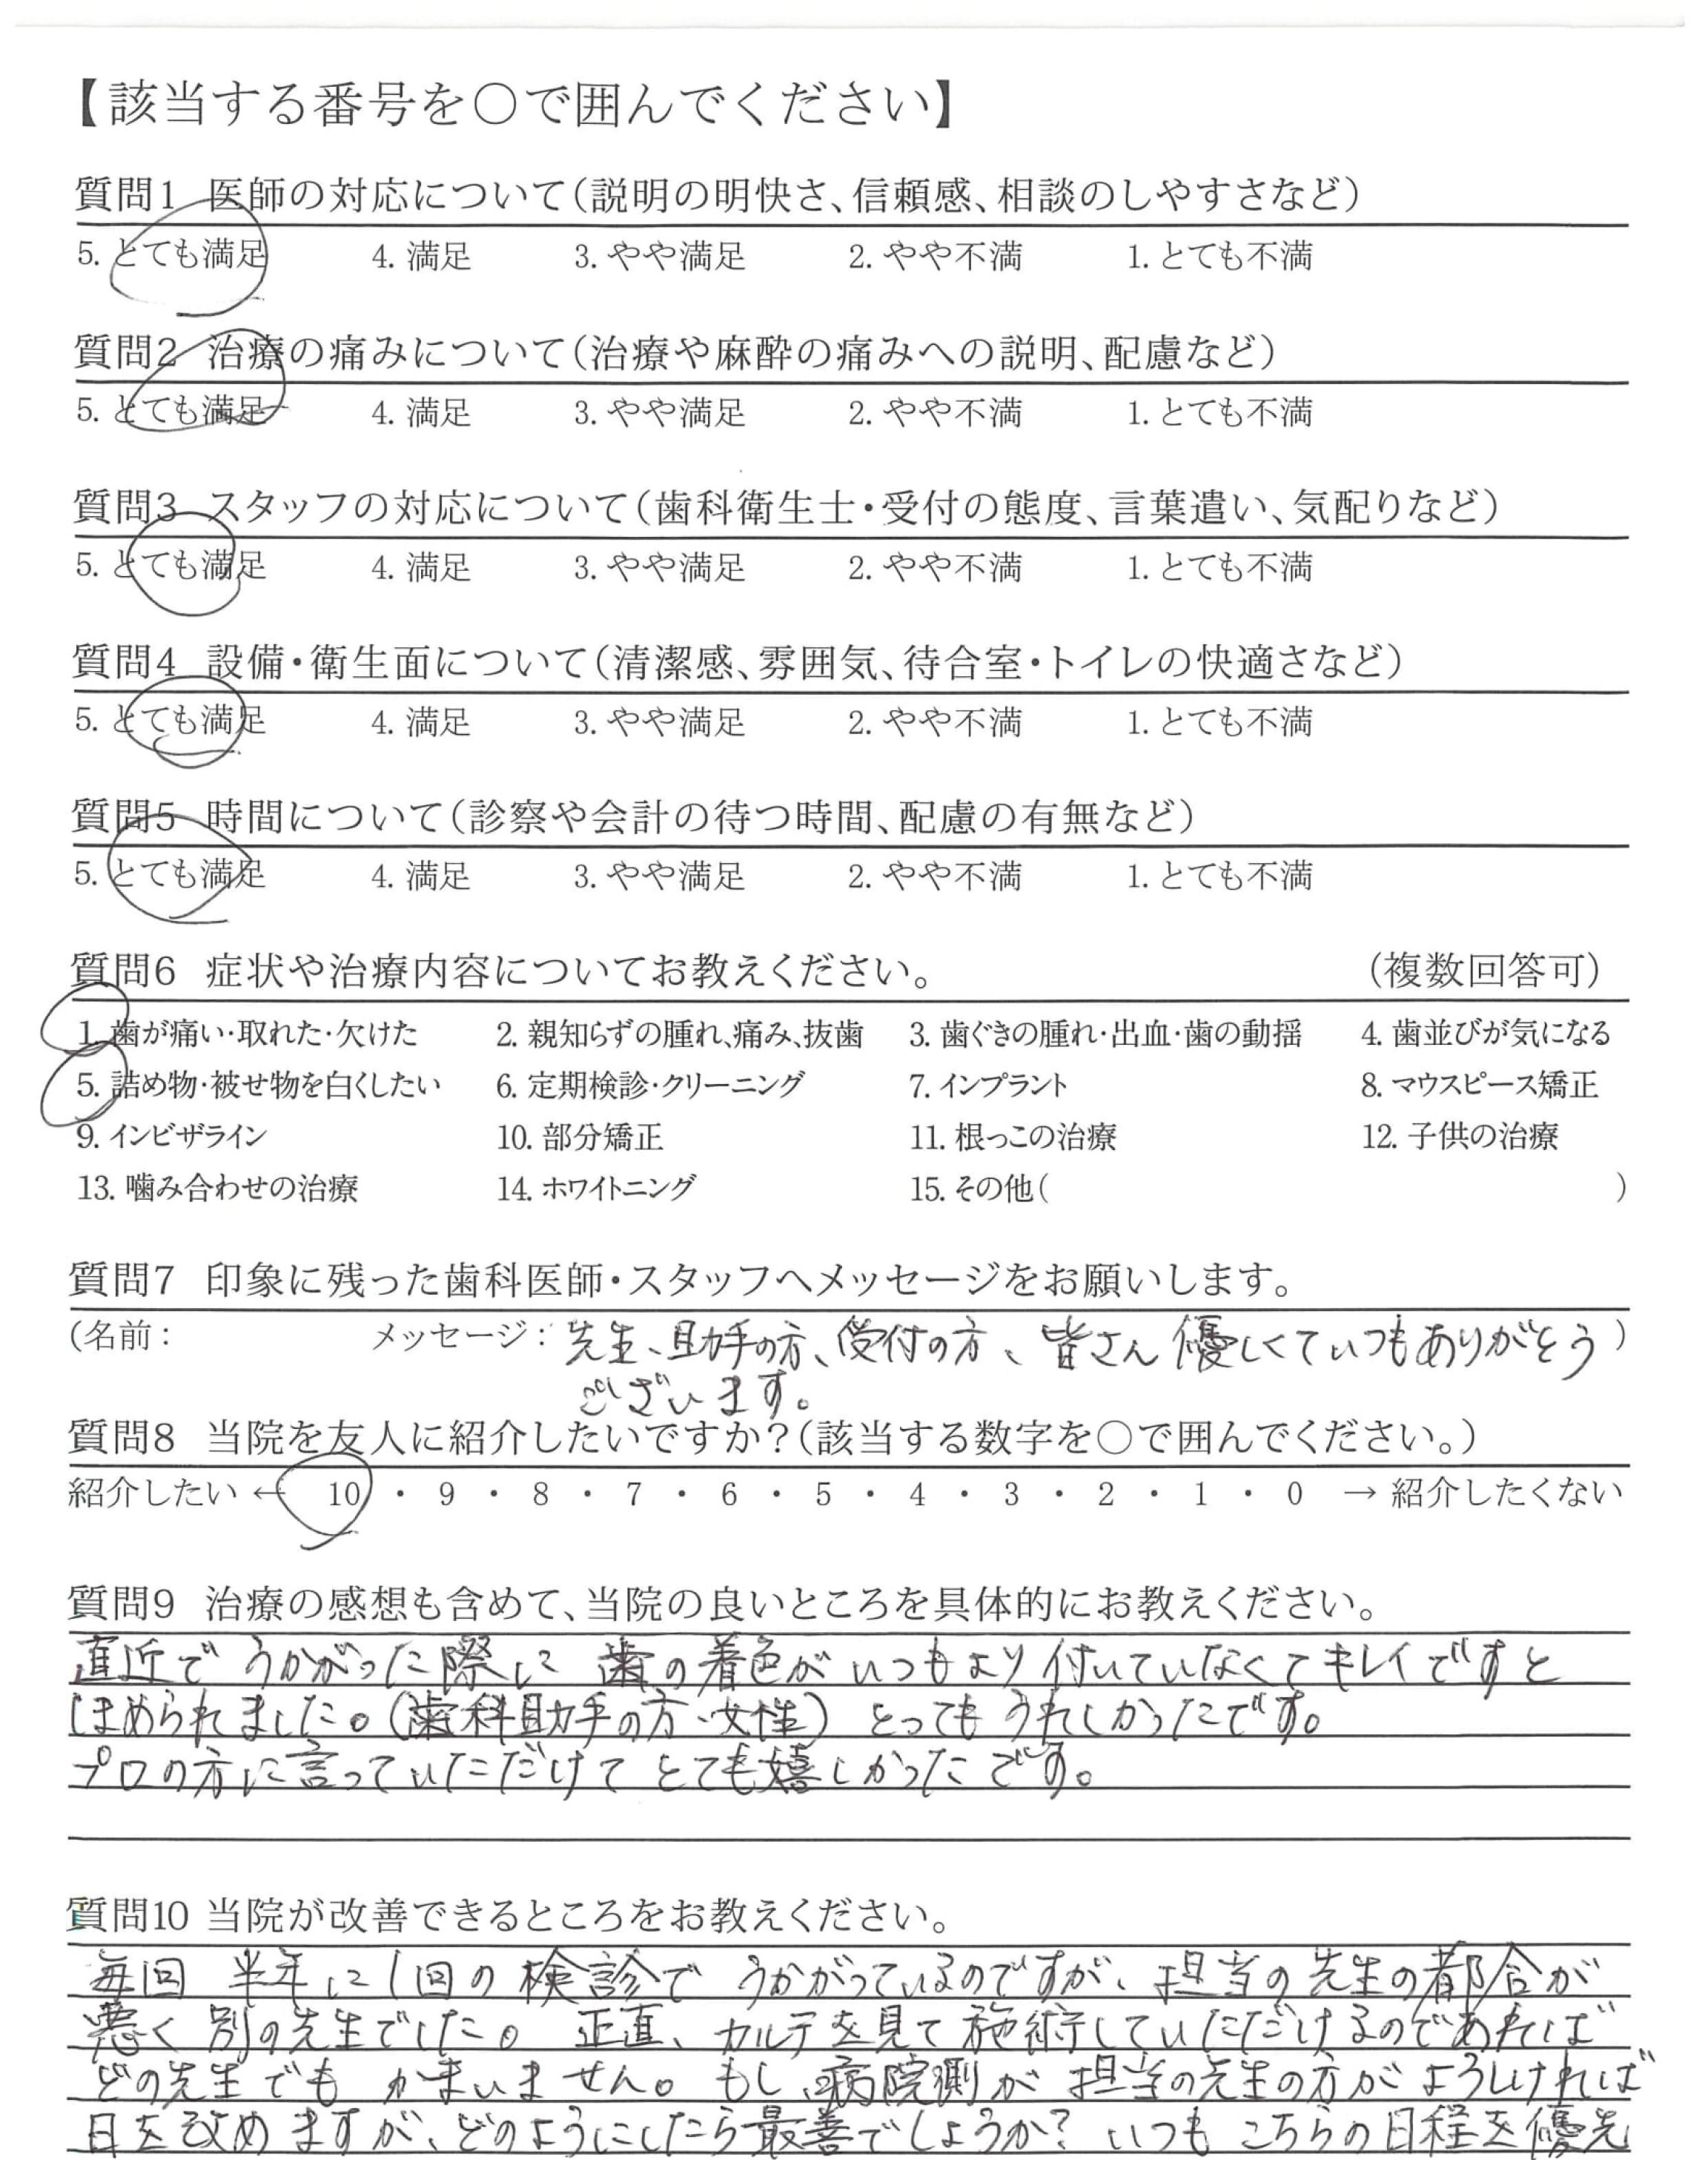 【該当する番号を〇で囲んでください】
質問1 医師の対応について(説明の明快さ、信頼感、相談のしやすさなど)
5. とても満足 4. 満足 3. やや満足 2. やや不満 1. とても不満
質問2 治療の痛みについて(治療や麻酔の痛みへの説明、配慮など)
5. とても満足 4. 満足 3. やや満足 2. やや不満 1. とても不満
質問3 スタッフの対応について(歯科衛生士・受付の態度、言葉遣い、気配りなど)
5. とても満足 4. 満足 3. やや満足 2. やや不満 1. とても不満
質問4 設備・衛生面について(清潔感、雰囲気、待合室・トイレの快適さなど)
5. とても満足 4. 満足 3. やや満足 2. やや不満 1. とても不満
質問5 時間について(診察や会計の待つ時間、配慮の有無など)
5. とても満足 4. 満足 3. やや満足 2. やや不満 1. とても不満
質問6 症状や治療内容についてお教えください。 (複数回答可)
1. 歯が痛い・取れた・欠けた 2. 親知らずの腫れ、痛み、抜歯 3. 歯ぐきの腫れ・出血・歯の動揺 4. 歯並びが気になる
5. 詰め物・被せ物を白くしたい 6. 定期検診・クリーニング 7. インプラント 8. マウスピース矯正
9. インビザライン 10. 部分矯正 11. 根っこの治療 12. 子供の治療
13. 噛み合わせの治療 14. ホワイトニング 15. その他( )
質問7 印象に残った歯科医師・スタッフへメッセージをお願いします。
(名前: メッセージ: 先生、助手の方、受付の方、皆さん優しくていつもありがとう)
ございます。
質問8 当院を友人に紹介したいですか?(該当する数字を〇で囲んでください。)
紹介したい ← 10 ・ 9 ・ 8 ・ 7 ・ 6 ・ 5 ・ 4 ・ 3 ・ 2 ・ 1 ・ 0 → 紹介したくない
質問9 治療の感想も含めて、当院の良いところを具体的にお教えください。
直近でうかがった際に歯の着色がいつもより付いていなくてキレイですと
ほめられました。(歯科助手の方・女性)とってもうれしかったです。
プロの方に言っていただけてとても嬉しかったです。
質問10 当院が改善できるところをお教えください。
毎回 半年に1回の検診でうかがっているのですが、担当の先生の都合が
悪く別の先生でした。正直、カルテを見て施術していただけるのであれば
どの先生でもかまいません。もし、病院側が担当の先生の方がよろしければ
日を改めますが、どのようにしたら最善でしょうか?いつもこちらの日程を優先